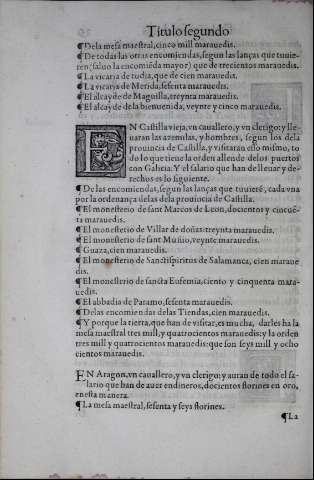 Titulo segundo
¶ De la mesa maestral, cinco mill marauedis.
¶ De todas las otras encomiendas, segun las lanças que tuuie-
ren (saluo la encomiēda mayor) que de trecientos marauedis.
¶ La vicaria de tudia, que de cien marauedis.
¶ La vicaria de Merida, sesenta marauedis.
¶ El alcayde de Maguilla, treynta marauedis.
¶ El alcayde de la bienuenida, veynte y cinco marauedis.
EN Castilla vieja, vn cauallero, y vn clerigo: y lle
uaran las azemilas, y hombres, segun los de la
prouincia de Castilla, y visitaran esso mismo, to
do lo que tiene la orden allende de los puertos
con Galicia. Y el salario que han de lleuar y de-
rechos es lo siguiente.
¶ De las encomiendas, segun las lanças que tuuierē, cada vna
por la ordenança de las de la prouincia de Castilla.
¶ El monesterio de sant Marcos de Leon, docientos y cincuē-
ta marauedis.
¶ El monesterio de Villar de doñas: treynta marauedis.
¶ El monesterio de sant Muñio, veynte marauedis.
¶ Guaza, cien marauedis.
¶ El monesterio de Sanctispiritus de Salamanca, cien maraue
dis.
¶ El monesterio de sancta Eufemia, ciento y cinquenta mara-
uedis.
¶ El abbadia de Paramo, sesenta marauedis.
¶ De las encomiendas de las Tiendas, cien marauedis.
¶ Y porque la tierra, que han de visitar, es mucha, darles ha la
mesa maestral tres mill, y quatrocientos marauedis: y la orden
tres mill y quatrocientos marauedis: que son seys mill y ocho
cientos marauedis.
EN Aragon, vn cauallero, y vn clerigo: y auran de todo el sa-
lario que han de auer en dineros, docientos florines en oro,
en esta manera.
¶ La mesa maestral, sesenta y seys florines.
¶ La